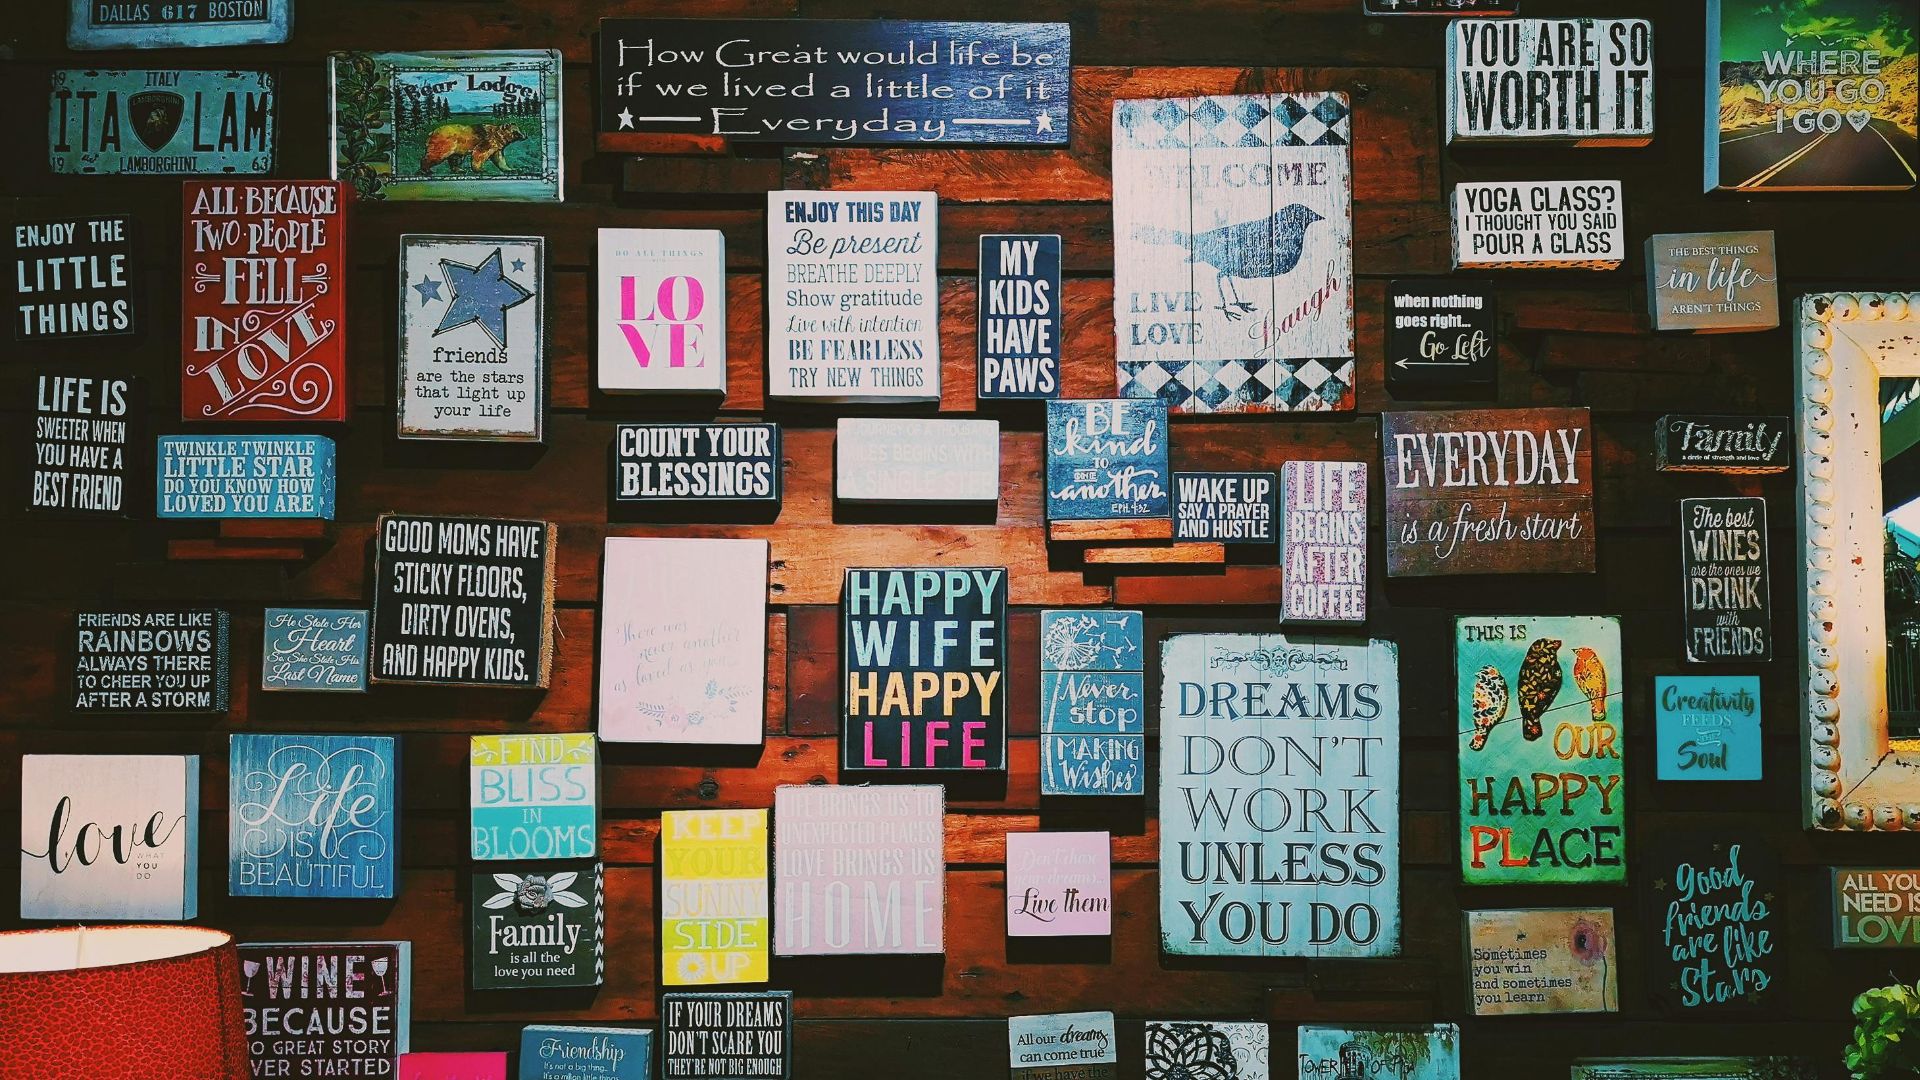 DALLAS 617 BOSTON
ITALY
ITA LAM
LAMBORGHINI
19 63
Bear Lodge
How Great would life be
if we lived a little of it
Everyday
YOU ARE SO
WORTH IT
WHERE
YOU GO
I GO
ENJOY THE
LITTLE
THINGS
ALL BECAUSE
TWO PEOPLE
FELL
IN
LOVE
friends
are the stars
that light up
your life
DO ALL THINGS
LO
VE
ENJOY THIS DAY
Be present
BREATHE DEEPLY
Show gratitude
Live with intention
BE FEARLESS
TRY NEW THINGS
MY
KIDS
HAVE
PAWS
WELCOME
LIVE
LOVE
Laugh
YOGA CLASS?
I THOUGHT YOU SAID
POUR A GLASS
THE BEST THINGS
in life
AREN'T THINGS
when nothing
goes right...
Go Left
LIFE IS
SWEETER WHEN
YOU HAVE A
BEST FRIEND
TWINKLE TWINKLE
LITTLE STAR
DO YOU KNOW HOW
LOVED YOU ARE
COUNT YOUR
BLESSINGS
JOURNEY OF A THOUSAND
MILES BEGINS WITH
A SINGLE STEP
BE
kind
TO
ONE
another
EPH. 4:32
WAKE UP
SAY A PRAYER
AND HUSTLE
LIFE
BEGINS
AFTER
COFFEE
EVERYDAY
is a fresh start
Family
a circle of strength and love
The best
WINES
are the ones we
DRINK
with
FRIENDS
GOOD MOMS HAVE
STICKY FLOORS,
DIRTY OVENS,
AND HAPPY KIDS.
FRIENDS ARE LIKE
RAINBOWS
ALWAYS THERE
TO CHEER YOU UP
AFTER A STORM
He Stole Her
Heart
So She Stole His
Last Name
There was
never another
as loved as you
HAPPY
WIFE
HAPPY
LIFE
Never
stop
MAKING
Wishes
DREAMS
DON'T
WORK
UNLESS
YOU DO
THIS IS
OUR
HAPPY
PLACE
Creativity
FEEDS
THE
Soul
love
WHAT
YOU
DO
Life
IS
BEAUTIFUL
FIND
BLISS
IN
BLOOMS
Family
is all the
love you need
KEEP
YOUR
SUNNY
SIDE
UP
LIFE BRINGS US TO
UNEXPECTED PLACES
LOVE BRINGS US
HOME
Don't chase
your dreams...
Live them
Good
friends
are like
Stars
ALL YOU
NEED IS
LOVE
Sometimes
you win
and sometimes
you learn
WINE
BECAUSE
NO GREAT STORY
EVER STARTED
Friendship
It's not a big thing...
it's a million little things
IF YOUR DREAMS
DON'T SCARE YOU
THEY'RE NOT BIG ENOUGH
All our dreams
can come true
if we have the
TOWER OF PISA